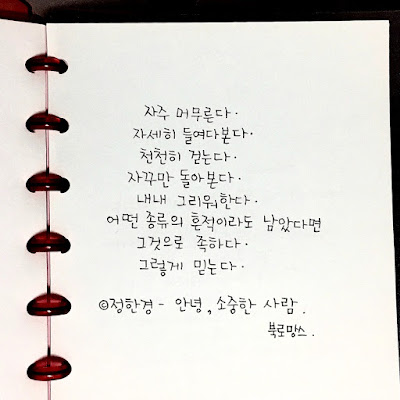 자주 머무른다.
자세히 들여다본다.
천천히 걷는다.
자꾸만 돌아본다.
내내 그리워한다.
어떤 종류의 흔적이라도 남았다면
그것으로 족하다.
그렇게 믿는다.
©정한경 - 안녕, 소중한 사람.
북로망스.